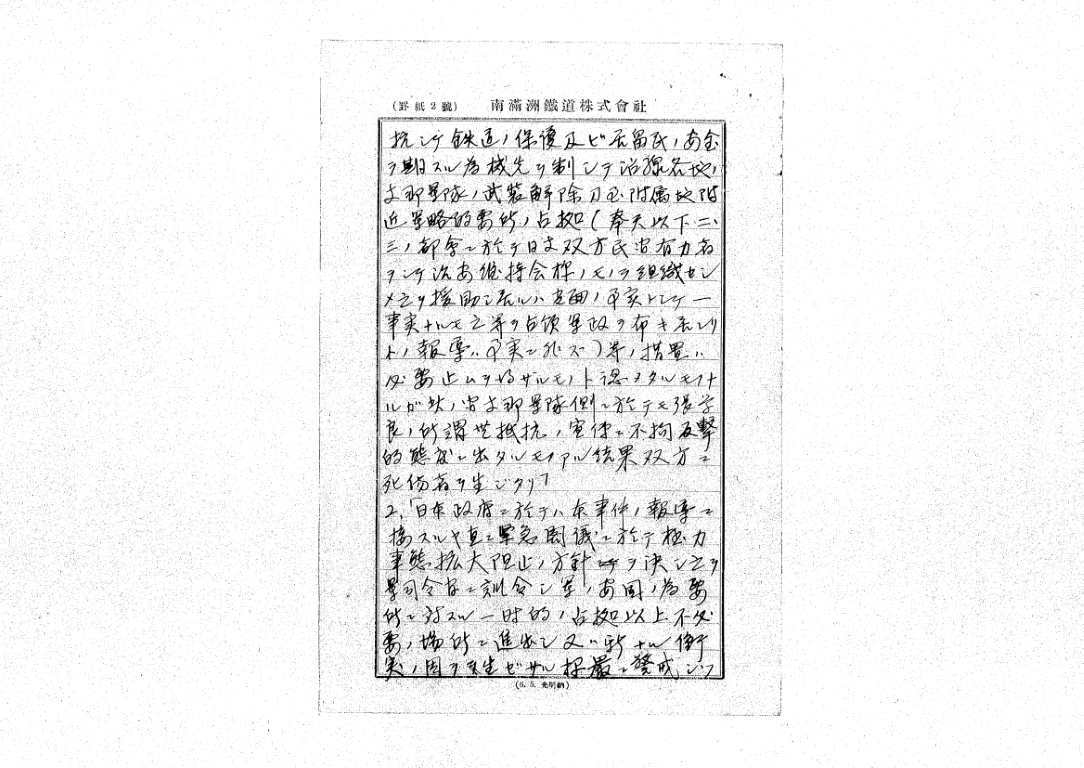 (罫紙2號) 南滿洲鐵道株式會社
抗シテ鉄道ノ保護及ビ居留民ノ安全
ヲ期スル為機先ヲ制シテ沿線各地ノ
支那軍隊ノ武装解除乃至附属地附
近軍略的要所ノ占拠(奉天以下二、
三ノ都會ニ於テ日支双方民間有力者
ヲシテ治安維持会様ノモノヲ組織セシ
メ之ヲ援助シ居ルハ 事実トシテ一
事実ナルモ之等ヲ占領軍政ヲ布キ居レリ
トノ報導ハ事実ニ非ズ)等ノ措置ハ
必要止ムヲ得ザルモノト認メタルモノナ
ルガ其ノ際支那軍隊側ニ於テモ張学
良ノ所謂無抵抗ノ宣伝ニ不拘反撃
的態度ニ出タルモノアル結果双方ニ
死傷者ヲ生ジタリ」
2.「日本政府ニ於テハ本事件ノ報導ニ
接スルヤ直ニ緊急閣議ニ於テ極力
事態拡大阻止ノ方針ヲ決シ之ヲ
軍司令官ニ訓令シ 安固ノ為要
所ニ対スル一時的ノ占拠以上不必
要ノ場所ニ進出シ又ハ新ナル衝
突ノ因ヲ発生ゼザル様厳ニ警戒シツ
(6. 5. 光明納)